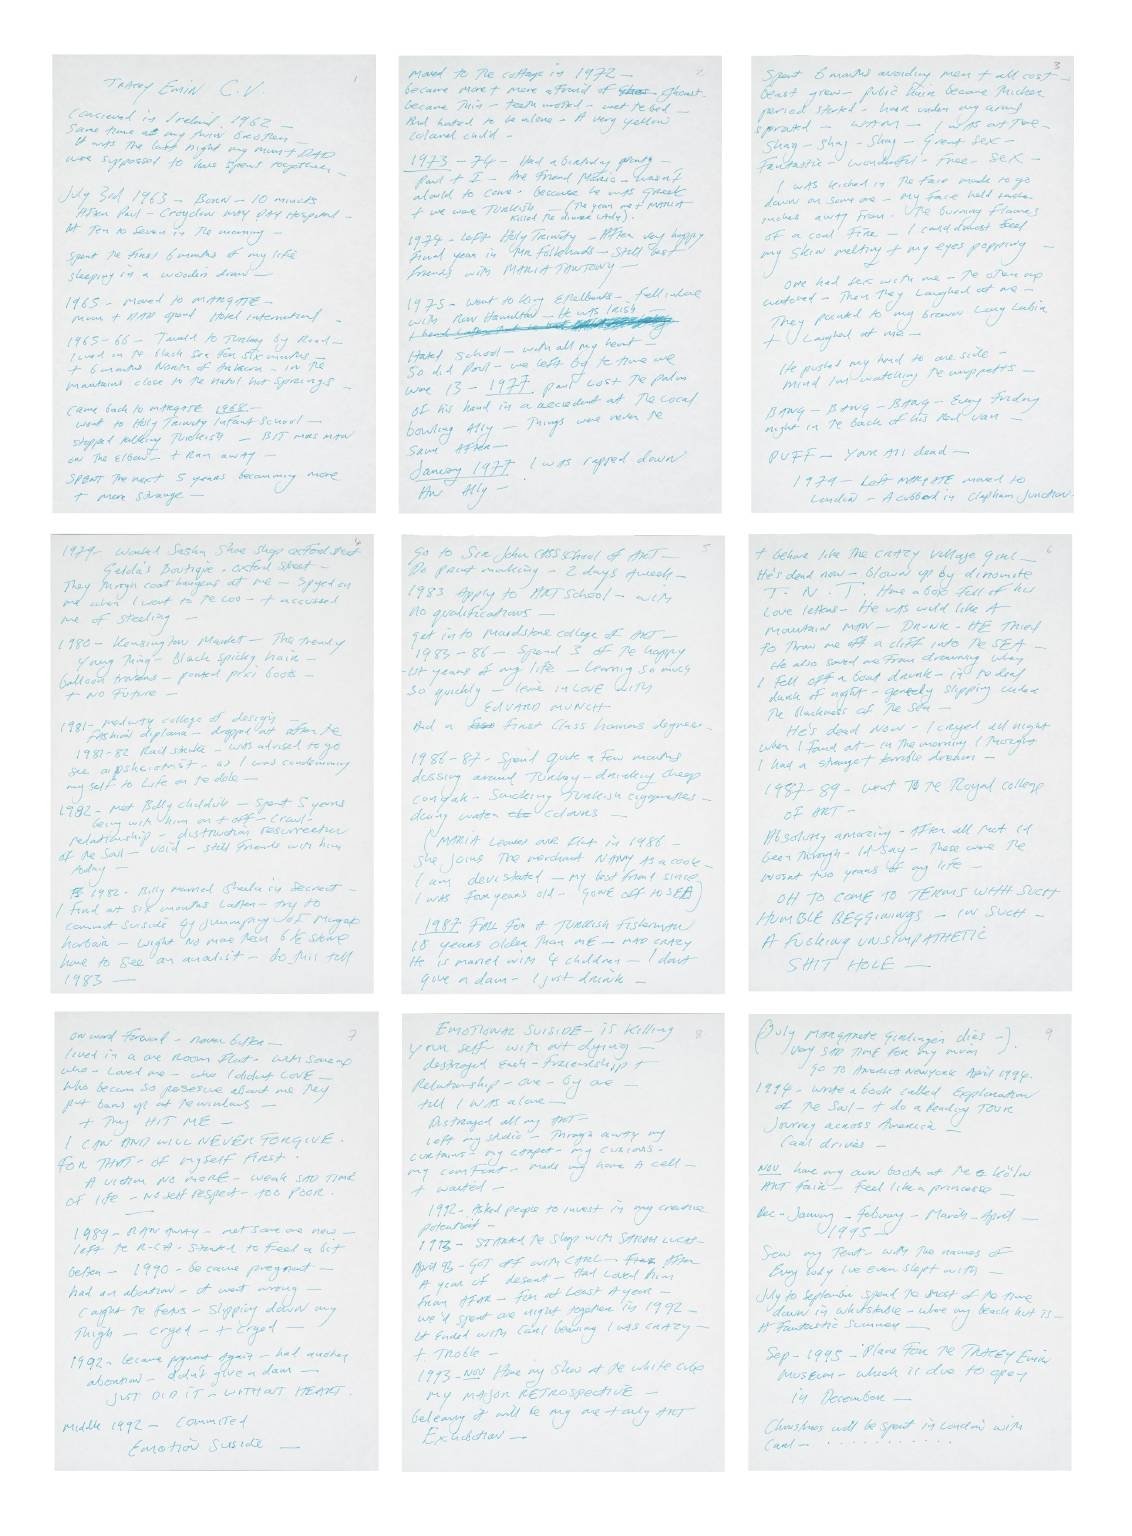 TRACEY EMIN C.V. 1
Concieved in Ireland. 1962 —
Same time as my twin brother —
It was the last night my mum + DAD
were suppossed to have spent together —
July 3rd 1963 — Born — 10 minuets
After Paul — Croydon MAY DAY Hospital —
At Ten to Seven in The morning —
Spent the first 6 months of my life
sleeping in a wooden draw —
1965 — Moved to MARGATE —
Mum + DAD opend Hotel international —
1965-66 — Traveld to Turkey by Road —
Lived on the black sea for six months —
+ 6 months North of Ankara — in the
mountains close to the natural hot springs —
Came back to MARGATE 1968 —
went to Holy Trinity Infant School —
stopped talking Turkish — BIT MRS MAN
on The Elbow — + Ran away —
SPENT The next 5 years becoming more
+ more Strange —
2
Moved to The cottage in 1972 —
became more + more afraid of ghost.
became thin — teeth rotted — wet The bed —
And hated to be alone — A very yellow
colored child —
1973 — 74 — Had a birthday party —
Paul + I — Are friend Mario — wasn't
aloud to come. because he was Greek
+ we were Turkish — (The year me + MARIA
Killed the dinner Lady).
1974 — left Holy Trinity — After very happy
final year in Mr — Still best
friends with MARIA —
1975 — went to King Ethelberts — fell in love
with Ron Hamilton — He was Irish —
Hated School — with all my heart —
So did Paul — we left by the time we
were 13 — 1977. Paul lost the palm
of his hand in a accedent at The Local
bowling Ally — Things were never the
Same After —
January 1977. I was rapped down
An Ally —
3
Spent 6 months avoiding men + all cost —
breast grew — pubic hair became thicker
period started — hair under my arms
sprouted — WAM — I was at The —
Shag — Shag — Shag — Great Sex —
Fantastic — wonderful — Free — Sex —
I was kicked in The face made to go
down on some one — My face held
inches away from — The burning flames
of a coal fire — I could almost feel
my skin melting + my eyes popping —
One had sex with me — The other
watched — Then They laughed at me —
They pointed to my brown long labia
+ Laughed at me —
He pushed my head to one side —
mind Im watching The muppetts —
BANG — BANG — BANG — Every friday
night in The back of his Red van —
PUFF — Your All dead —
1979 — Left MARGATE moved to
London — A cubbord in Clapham Junction —
4
1979 — Worked Sasha Shoe shop oxford street
Gelda's Boutique — oxford Street —
They through coat hangers at me — spyed on
me when I went to The Loo — + accussed
me of steeling —
1980 — Kensington Market — The trendy
Young Thing — Black spicky hair —
balloon trousers — pointed pixi boots —
+ NO Future —
1981 — Medway college of design —
fashion diploma — dropped out after The
1981-82 Rail strike — was advised to go
see a — as I was condemming
myself to Life on The dole —
1982 — Met Billy childish — Spent 5 years
being with him on + off — Cruel —
relationship — distruction resurrection
of the Soul — void — still friends with him
today —
1982. Billy married Sheila in Secret —
I find out six months later — try to
commit suicide by jumping of Margate
harbour — Wight no more Than 6½ stone
have to see an analist — do this till
1983 —
5
Go to Sir John CASS School of ART —
Do print making — 2 days a week —
1983 Apply to ART School — with
no qualifications —
get into Maidstone college of ART —
1983 — 86 — Spend 3 of the happy
-ist years of my life — Learnig so much
So quickly — I'm in LOVE WITH
EDVARD MUNCH
And a First Class honours degree —
1986-87 — Spend quite a few months
dossing around Turkey — drinking cheap
conyak — Smoking Turkish ciggarettes —
doing water colours —
(MARIA leaves our flat in 1986 —
She joins The merchant NAVY as a cook —
I am devistated — my best friend since
I was four years old — GONE off to SEA)
1987 FALL FOR A TURKISH Fisherman
18 years older Than ME — MAD CRAZY
He is maried with 4 children — I don't
give a dam — I just drink —
6
+ behave like The CRAZY village girl —
He's dead now — blown up by dinomite
T. N. T. Have a box full of his
Love letters — He was wild like A
mountain MAN — DRUNK — HE Tried
to throw me of a cliff into The SEA —
He also saved me from drowning when
I fell off a boat drunk — in The dead
dunk of night — gentely slipping under
The blackness of The Sea —
He's dead Now — I cryed all night
when I found out — in the morning I thought
I had a strange + terrible dream —
1987 — 89 — went To The Royal college
OF ART —
Absolutly amazing — After all that Id
been Through — Id Say — These were The
worst two years of my life —
OH TO COME TO TERMS WITH SUCH
HUMBLE BEGGININGS — IN SUCH —
A FUCKING UNSIMPATHETIC
SHIT HOLE —
7
onword forword — never better —
lived in a one room flat — with some one
who — Loved me — who I didnt LOVE —
Who becam so possesive about me They
put bars up at The windows —
+ They HIT ME —
I CAN AND WILL NEVER FORGIVE.
FOR THAT — OF MySELF FIRST —
A victim NO MORE — WEAK SAD TIME
OF life — NO self respect — TOO POOR —
1989 — RAN AWAY — Met some one new —
left The R.C.A. Started to feel a bit
better — 1990 — became pregnant —
had an abortion — it went wrong —
Caught The fetus — Slipping down my
Thigh — Cryed — + Cryed —
1992 — became pregnant again — had another
abortion — didn't give a dam —
JUST DID IT — WITHOUT HEART.
Middle 1992 — Commited
Emotion Suside —
8
EMOTIONAL SUISIDE — is Killing
your self with out dying —
destroyed Each — Friendship +
Relationship — one — by one —
till I was alone —
Distroyed all my ART —
left my studio — through away my
curtains — my carpet — my cusions —
my comfort — made my home A cell —
+ waited —
1992 — Asked people to invest in my creative
potential —
1993 — STARTED The Shop WITH SARAH LUCAS —
April 93 — GOT OFF WITH CARL — After
A year of desent — Had Loved him
From AFAR — For at Least A year —
we'd spent one night together in 1992 —
It Ended with Carl beliving I was CRAZY —
+ Troble —
1993 — NOV Have my Show at The white cube
MY MAJOR RETROSPECTIVE —
beleving it will be my one + only ART
Exhibition —
9
(July MARGARETE dies —).
VERY SAD TIME FOR my mum
GO TO AMERICA NEW YORK April 1994.
1994 — Wrote a book called Exploration
of The Soul — + do a Reading TOUR
Journey across America —
Carl drives —
NOV have my own booth at The köln
ART fair — feel like a princesse —
Dec — January — February — March — April —
1995 —
Sew my Tent — with The names of
Every body Ive ever slept with —
July to September spend The most of The time
down in whitstable — where my beach hut is —
A Fantastic Summer —
Sep — 1995 — Plans FOR The TRACEY Emin
Museum — which is due to open
in December —
Christmas will be spent in London with
Carl — . . . . . . . . . . . .